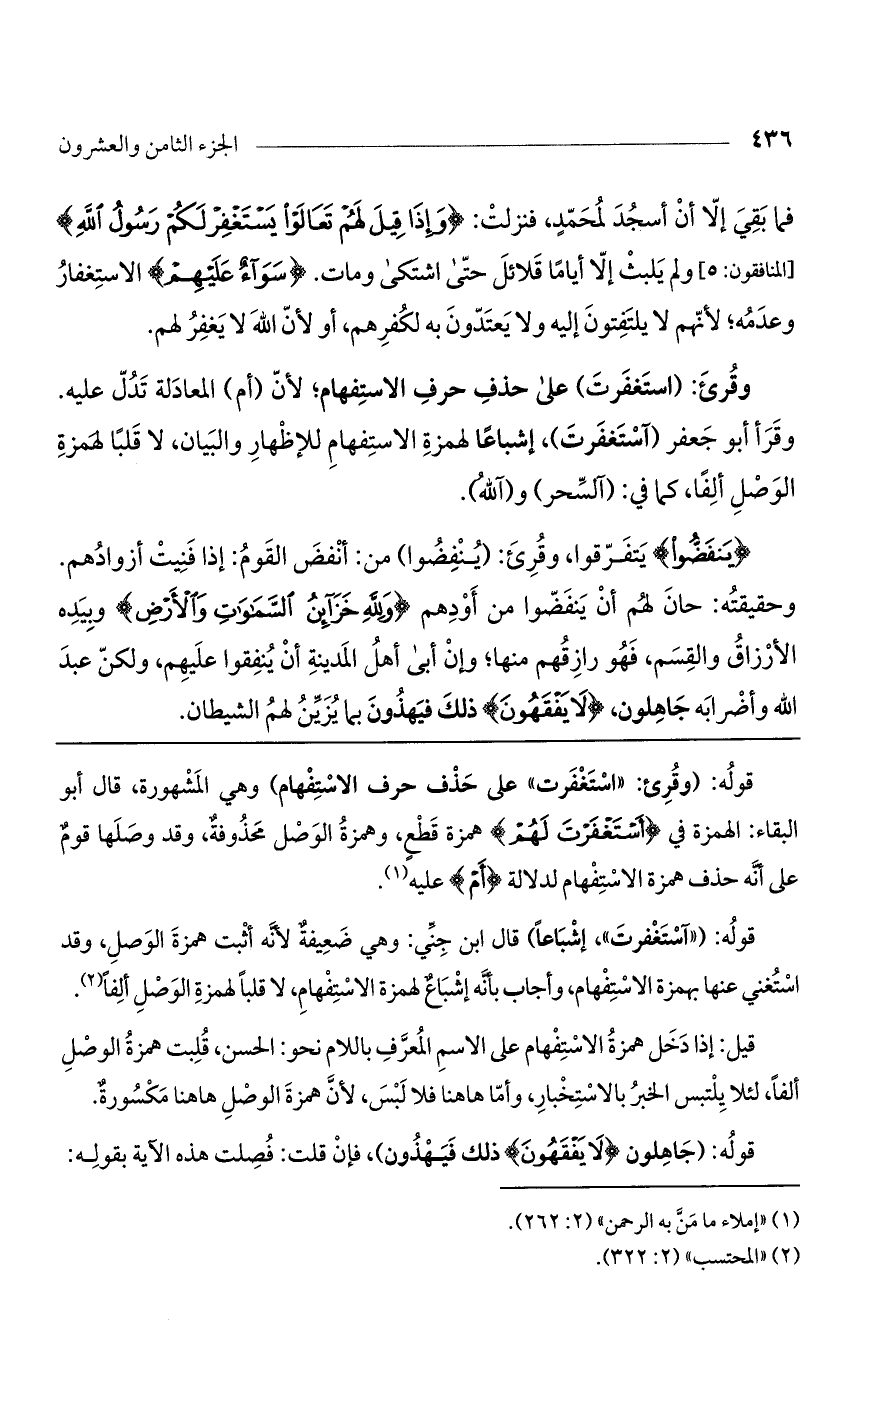 ٤٣٦ الجزء الثامن والعشرون
فما بَقِيَ إلّا أنْ أسجُدَ لمُحَمّدٍ، فنزلتْ: ﴿وَإِذَا قِيلَ لَهُمْ تَعَالَوْا يَسْتَغْفِرْ لَكُمْ رَسُولُ ٱللَّهِ﴾
[المنافقون: ٥] ولم يَلبثْ إلّا أيامًا قَلائلَ حتّىٰ اشتكىٰ ومات. ﴿سَوَآءٌ عَلَيْهِمْ﴾ الاستِغفارُ
وعدَمُه؛ لأنّهم لا يلتَفِتونَ إليه ولا يَعتَدّونَ به لكُفرِهم، أو لأنّ اللهَ لا يَغفِرُ لهم.
وقُرئَ: (استَغفَرتَ) علىٰ حذفِ حرفِ الاستِفهام؛ لأنّ (أم) المعادَلة تَدُلّ عليه.
وقَرَأ أبو جَعفر (آسْتَغفَرتَ)، إشباعًا لهمزةِ الاستِفهامِ للإظْهارِ والبَيان، لا قَلبًا لهَمزةِ
الوَصْلِ ألِفًا، كما في: (آلسِّحر) و(آللهُ).
﴿يَنفَضُّواْ﴾ يَتفَـرّقوا، وقُرِئَ: (يُـنْفِضُوا) من: أنْفضَ القَومُ: إذا فَنِيتْ أزوادُهم.
وحقيقتُه: حانَ لهُم أنْ يَنفَضّوا من أَوْدِهم ﴿وَلِلَّهِ خَزَآئِنُ ٱلسَّمَٰوَٰتِ وَٱلْأَرْضِ﴾ وبِيَدِه
الأرْزاقُ والقِسَم، فَهُو رازِقُهم منها؛ وإنْ أبىٰ أهلُ المَدينةِ أنْ يُنفِقوا علَيهِم، ولكنّ عبدَ
الله وأضْرابَه جَاهِلون، ﴿لَا يَفْقَهُونَ﴾ ذلكَ فيَهذُونَ بما يُزَيِّنُ لهمُ الشيطان.
قولُه: (وقُرِئ: «اسْتَغْفَرت» على حَذْف حرف الاسْتِفْهام) وهي المَشْهورة، قال أبو
البقاء: الهمزة في ﴿أَسْتَغْفَرْتَ لَهُمْ﴾ همزة قَطْعٍ، وهمزةُ الوَصْل محَذُوفةٌ، وقد وصَلَها قومٌ
على أنَّه حذف همزة الاسْتِفْهام لدلالة ﴿أَمْ﴾ عليه(١).
قولُه: («آسْتَغْفرتَ»، إشْبَاعاً) قال ابن جِنِّي: وهي ضَعِيفةٌ لأنَّه أثْبت همزةَ الوَصلِ، وقد
اسْتُغني عنها بهمزة الاسْتِفْهام، وأجاب بأنَّه إشْبَاعٌ لهمزة الاسْتِفْهامِ، لا قلباً لهمزةِ الوَصْلِ ألِفاً(٢).
قيل: إذا دَخَل همزةُ الاسْتِفْهام على الاسمِ المُعرَّفِ باللام نحو: الحسن، قُلِبت همزةُ الوصْلِ
ألفاً، لئلا يِلْتبس الخبرُ بالاسْتِخْبارِ، وأمّا هاهنا فلا لَبْسَ، لأنَّ همزةَ الوصْلِ هاهنا مَكْسُورةٌ.
قولُه: (جَاهِلون ﴿لَا يَفْقَهُونَ﴾ ذلك فَيَـهْذُون)، فإنْ قلت: فُصِلت هذه الآية بقولِـه:
(١) «إملاء ما مَنَّ به الرحمن» (٢: ٢٦٢).
(٢) «المحتسب» (٢: ٣٢٢).